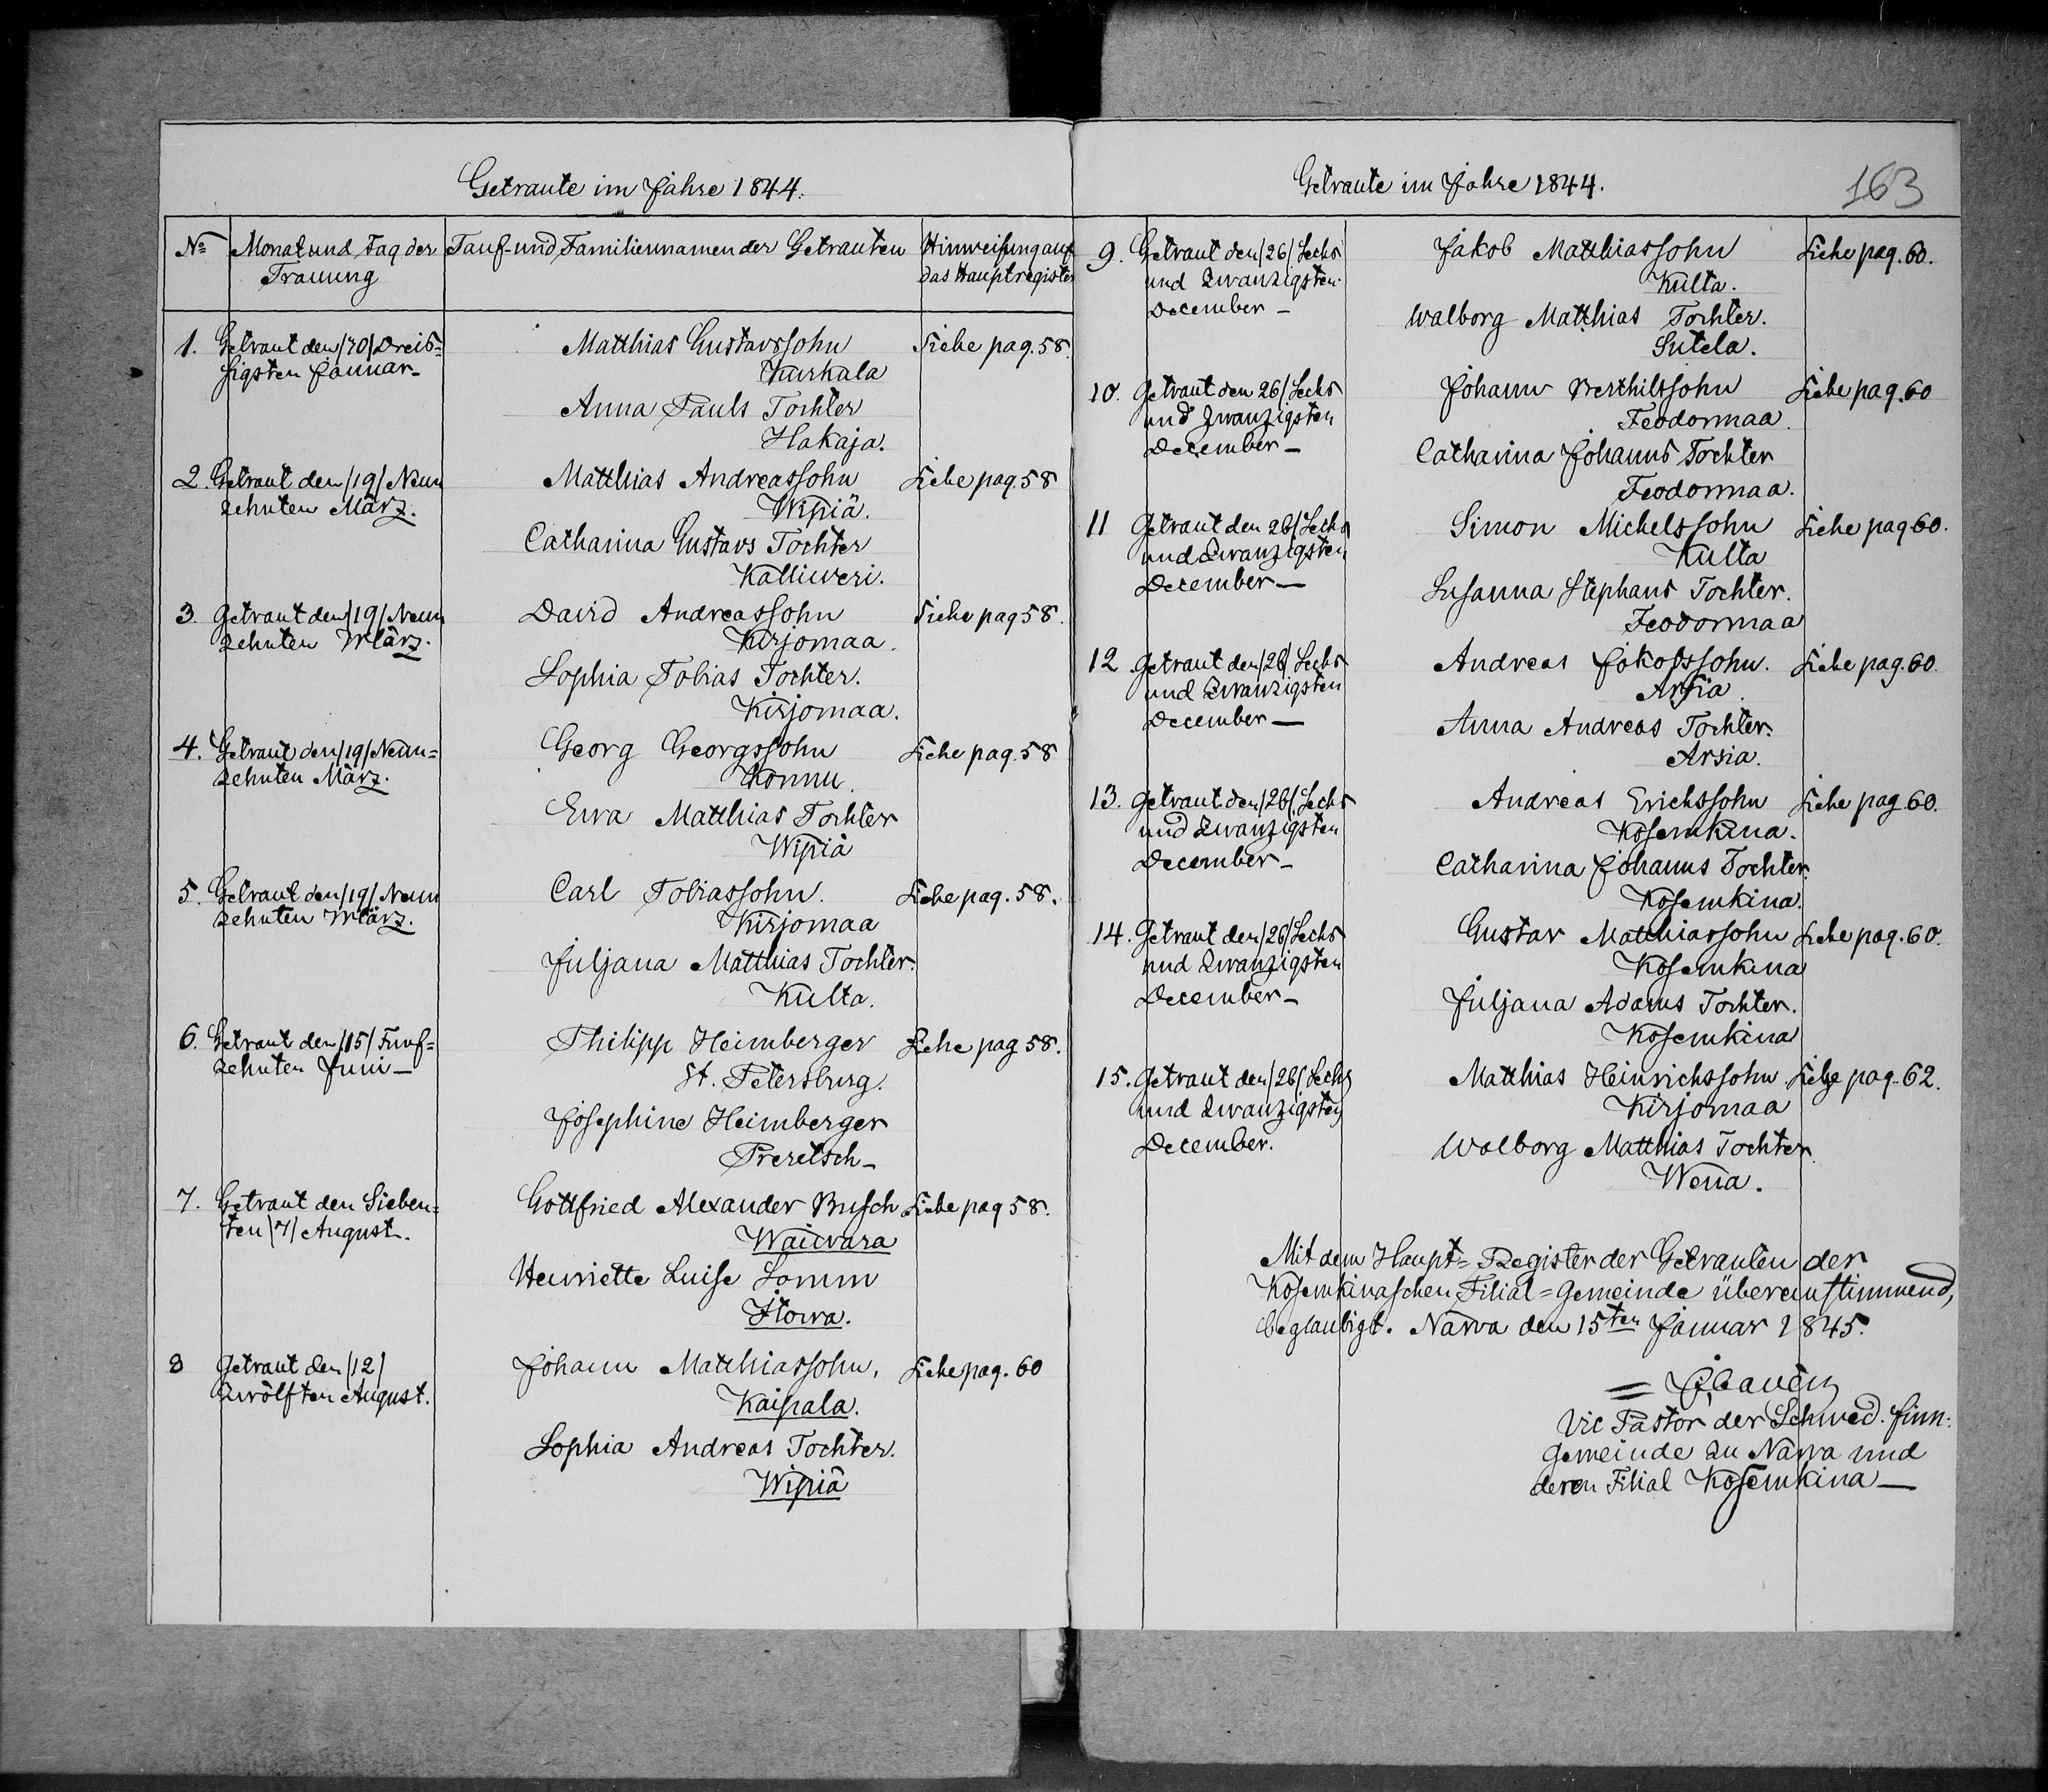 Getraute im Jahre 1844.
No Monat und Tag der Trauung
Tauf- und Familiennamen der Getrauten
Hinweisung auf das Hauptregister
1. Getraut den /30/ Dreis=
sigsten Januar -
Matthias Gustavssohn
Kurkala
Anna Pauls Tochter
Hakaja.
Siehe pag. 58.
2. Getraut den /19/ Neun
zehnten März.
Matthias Andreassohn
Wipiä.
Catharina Gustavs Tochter
Kalliweri.
Siehe pag. 58
3. Getraut den /19/ Neun
zehnten März.
David Andreassohn
Kirjomaa.
Sophia Tobias Tochter.
Kirjomaa.
Siehe pag 58.
4. Getraut den /19/ Neun=
zehnten März.
Georg Georgssohn
Konnu.
Ewa Matthias Tochter
Wipiä
Siehe pag. 58
5. Getraut den /19/ Neun
zehnten März.
Carl Tobiassohn.
Kirjomaa
Juljana Matthias Tochter.
Kulta.
Siehe pag. 58.
6. Getraut den /15/ Funf=
zehnten Juni -
Philipp Heimberger
St. Petersburg.
Josephine Heimberger
Preretsch -
Siehe pag 58.
7. Getraut den Sieben=
ten /7/ August.
Gottfried Alexander Busch
Waiwara
Henriette Luise Lomm
Jlowa.
Siehe pag 58.
8 Getraut den /12/
Zwölften August.
Johann Matthiassohn.
Kaipala.
Sophia Andreas Tochter.
Wipiä
Siehe pag. 60
Getraute im Jahre 1844.
163
9. Getraut den /26/ Sechs
und Zwanzigsten
December -
Jakob Matthiassohn
Kulta.
Walborg Matthias Tochter.
Sutela.
Siehe pag. 60.
10. Getraut den 26/ Sechs
und Zwanzigsten
December -
Johann Berthilssohn
Feodormaa.
Catharina Johanns Tochter
Feodormaa.
Siehe pag. 60
11 Getraut den 26/ Sechs
und Zwanzigsten
December -
Simon Michelssohn
Kulta
Susanna Stephans Tochter.
Feodormaa
Siehe pag 60.
12. Getraut den /26/ Sechs
und Zwanzigsten
December -
Andreas Jakobssohn.
Arsia.
Anna Andreas Tochter.
Arsia.
Siehe pag. 60.
13. Getraut den /26/ Sechs
und Zwanzigsten
December -
Andreas Erichssohn
Kosemkina.
Catharina Johanns Tochter.
Kosemkina.
Siehe pag. 60.
14. Getraut den /26/ Sechs
und Zwanzigsten
December -
Gustav Matthiassohn
Kosemkina
Juljana Adams Tochter.
Kosemkina
Siehe pag. 60.
15. Getraut den /26/ Sechs
und Zwanzigsten
December.
Matthias Heinrichssohn.
Kirjomaa
Walborg Matthias Tochter.
Wena.
Siehe pag. 62.
Mit dem Haupt=Register der Getrauten der
Kosemkinaschen Filial=Gemeinde übereinstimmend,
beglaubigt. Narva den 15ten Januar 1845.
Vic Pastor der Schwed. finn:
Gemeinde zu Narva und
deren Filial Kosemkina -